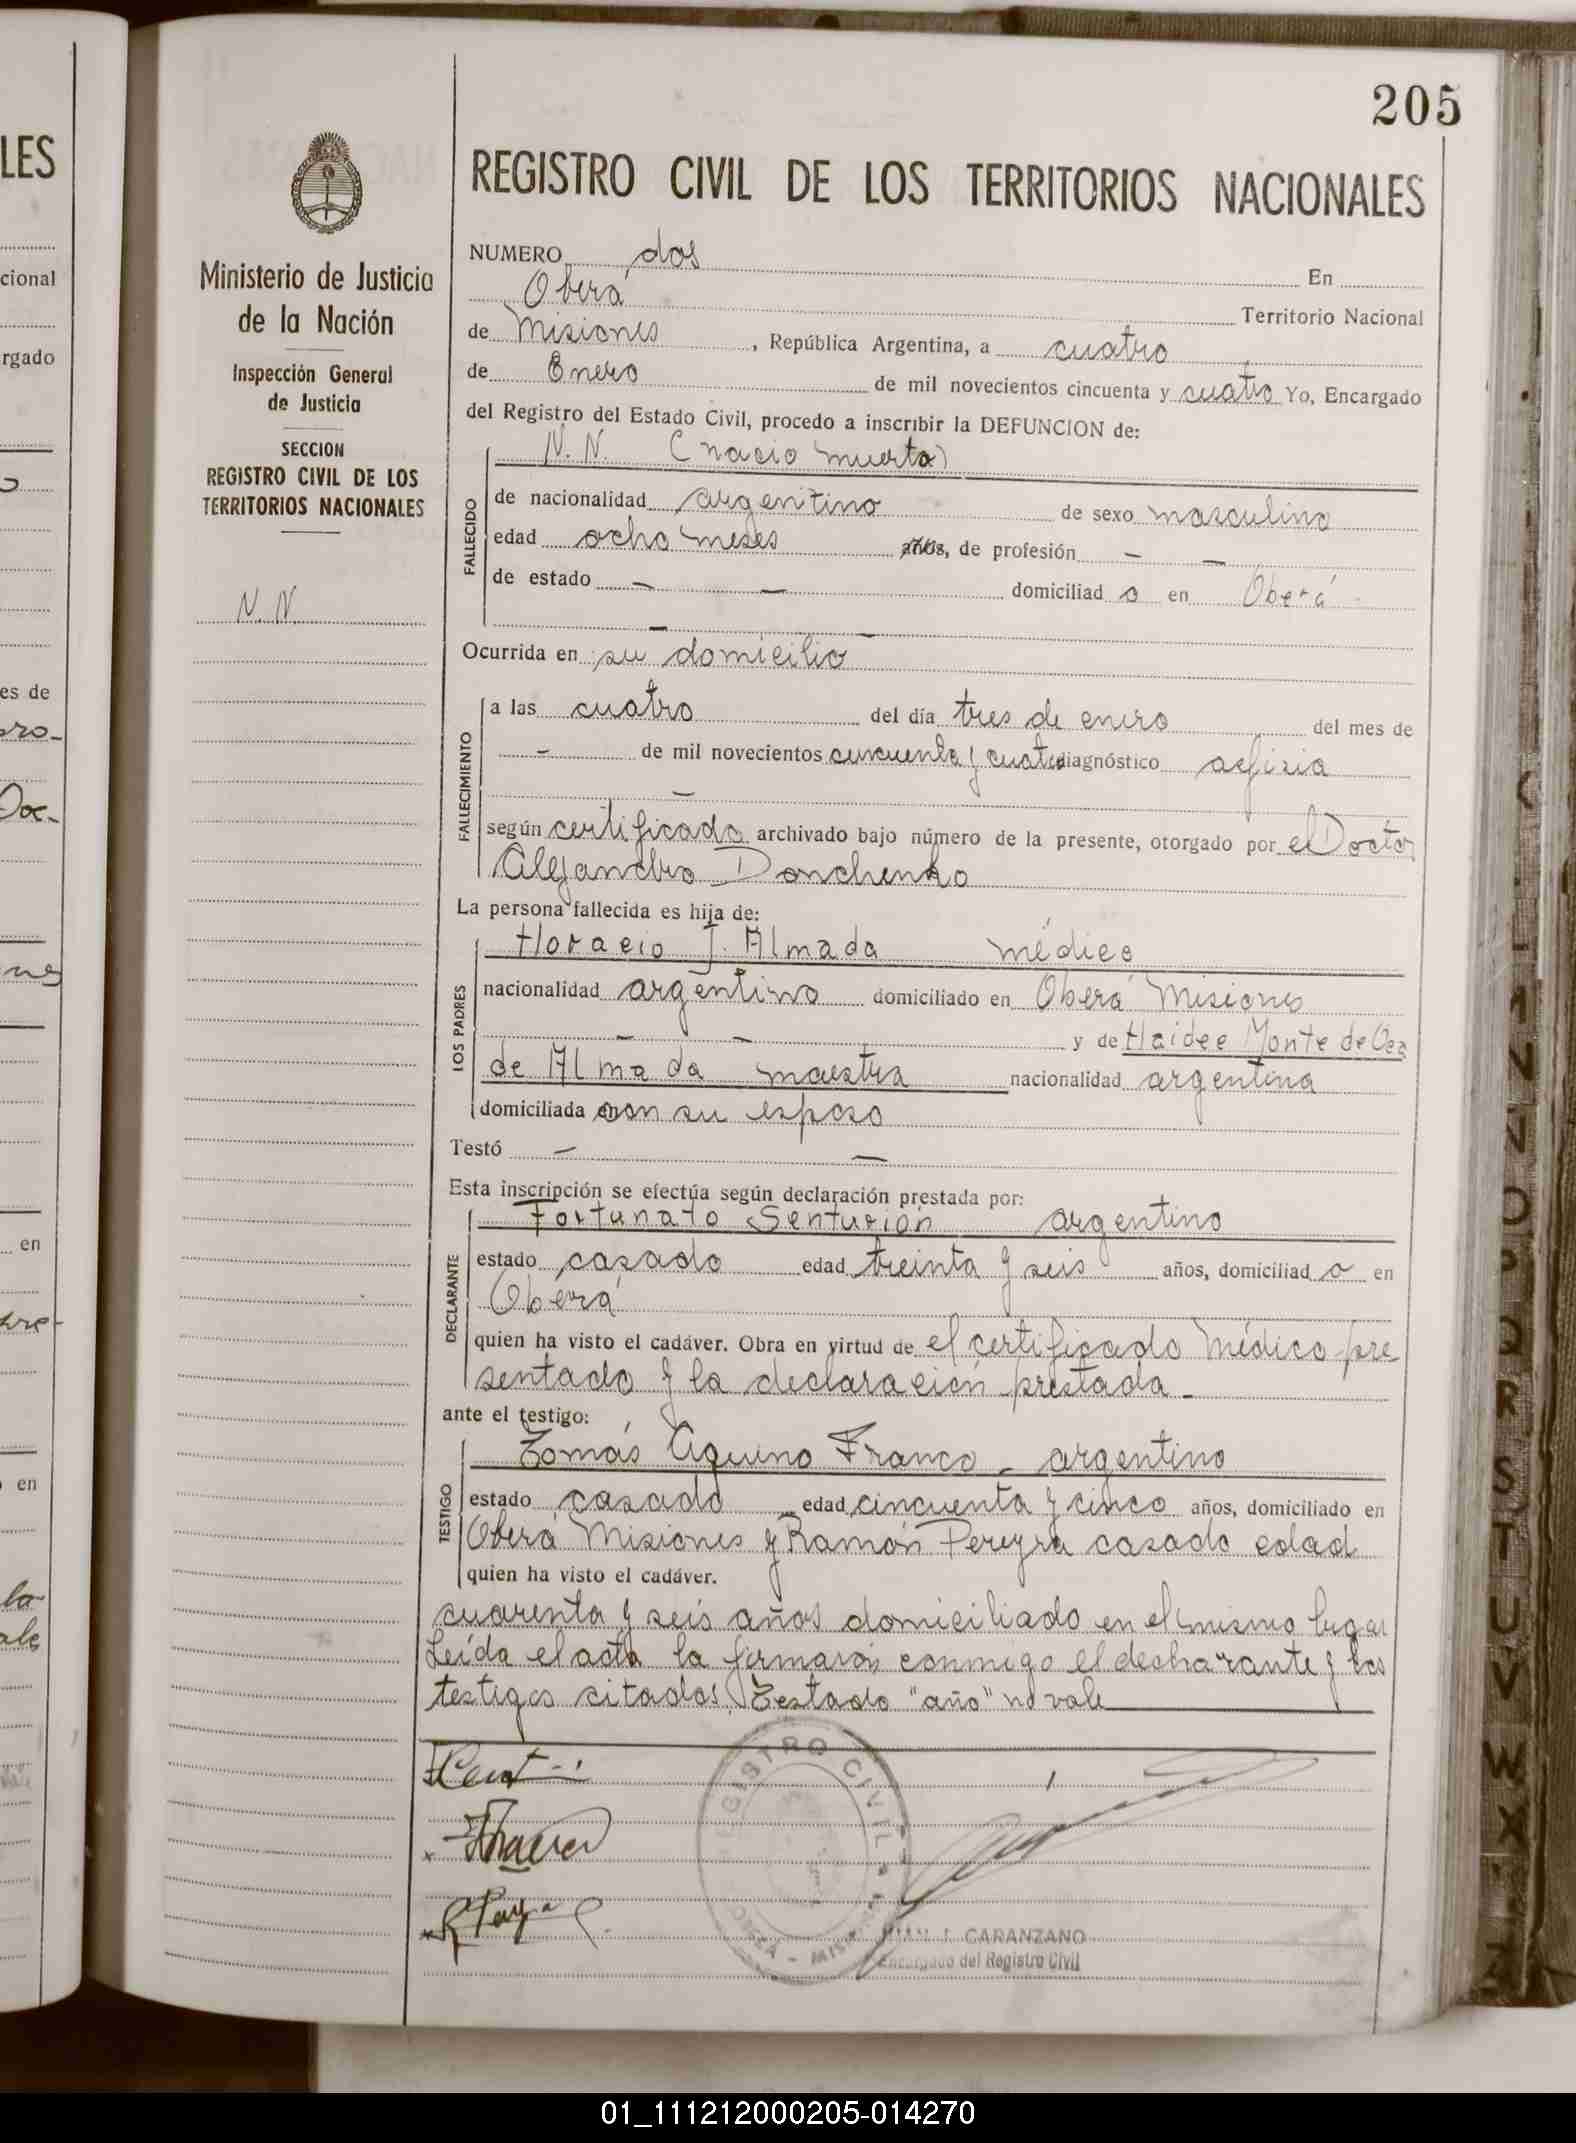 205
REGISTRO CIVIL DE LOS TERRITORIOS NACIONALES
Ministerio de Justicia
de la Nación
Inspección General
de Justicia
SECCION
REGISTRO CIVIL DE LOS
TERRITORIOS NACIONALES
N. N.
NUMERO dos En
Oberá Territorio Nacional
de Misiones, República Argentina, a cuatro
de Enero de mil novecientos cincuenta y cuatro Yo, Encargado
del Registro del Estado Civil, procedo a inscribir la DEFUNCION de:
N. N. (nacio muerto)
FALLECIDO
de nacionalidad argentino de sexo masculino
edad ocho meses años, de profesión — —
de estado — — domiciliad o en Oberá
— —
Ocurrida en su domicilio
FALLECIMIENTO
a las cuatro del día tres de enero del mes de
— de mil novecientos cincuenta y cuatro diagnóstico asfixia
—
según certificado archivado bajo número de la presente, otorgado por el Doctor
Alejandro Donchenko
La persona fallecida es hija de:
LOS PADRES
Horacio J. Almada médico
nacionalidad argentino domiciliado en Oberá Misiones
— — y de Haidee Monte de Oca
de Almada maestra nacionalidad argentina
domiciliada con su esposo
Testó — —
Esta inscripción se efectúa según declaración prestada por:
DECLARANTE
Fortunato Senturión argentino
estado casado edad treinta y seis años, domiciliad o en
Oberá
quien ha visto el cadáver. Obra en virtud de el certificado médico pre
sentado y la declaración prestada -
ante el testigo:
TESTIGO
Tomás Aquino Franco - argentino
estado casado edad cincuenta y cinco años, domiciliado en
Oberá Misiones y Ramón Pereyra casado edad
quien ha visto el cadáver.
cuarenta y seis años domiciliado en el mismo lugar
Leída el acta la firmaron conmigo el declarante y los
testigos citados. Testado "año" no vale
REGISTRO CIVIL
J. CARANZANO
Encargado del Registro Civil
LES
cional
rgado
es de
en
en
01_111212000205-014270